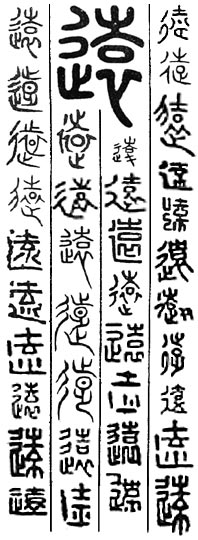 遠遠遠遠遠遠遠遠遠遠遠
遠
遠遠遠遠遠遠遠遠
遠遠遠遠遠遠遠
遠遠遠遠遠遠遠遠遠遠